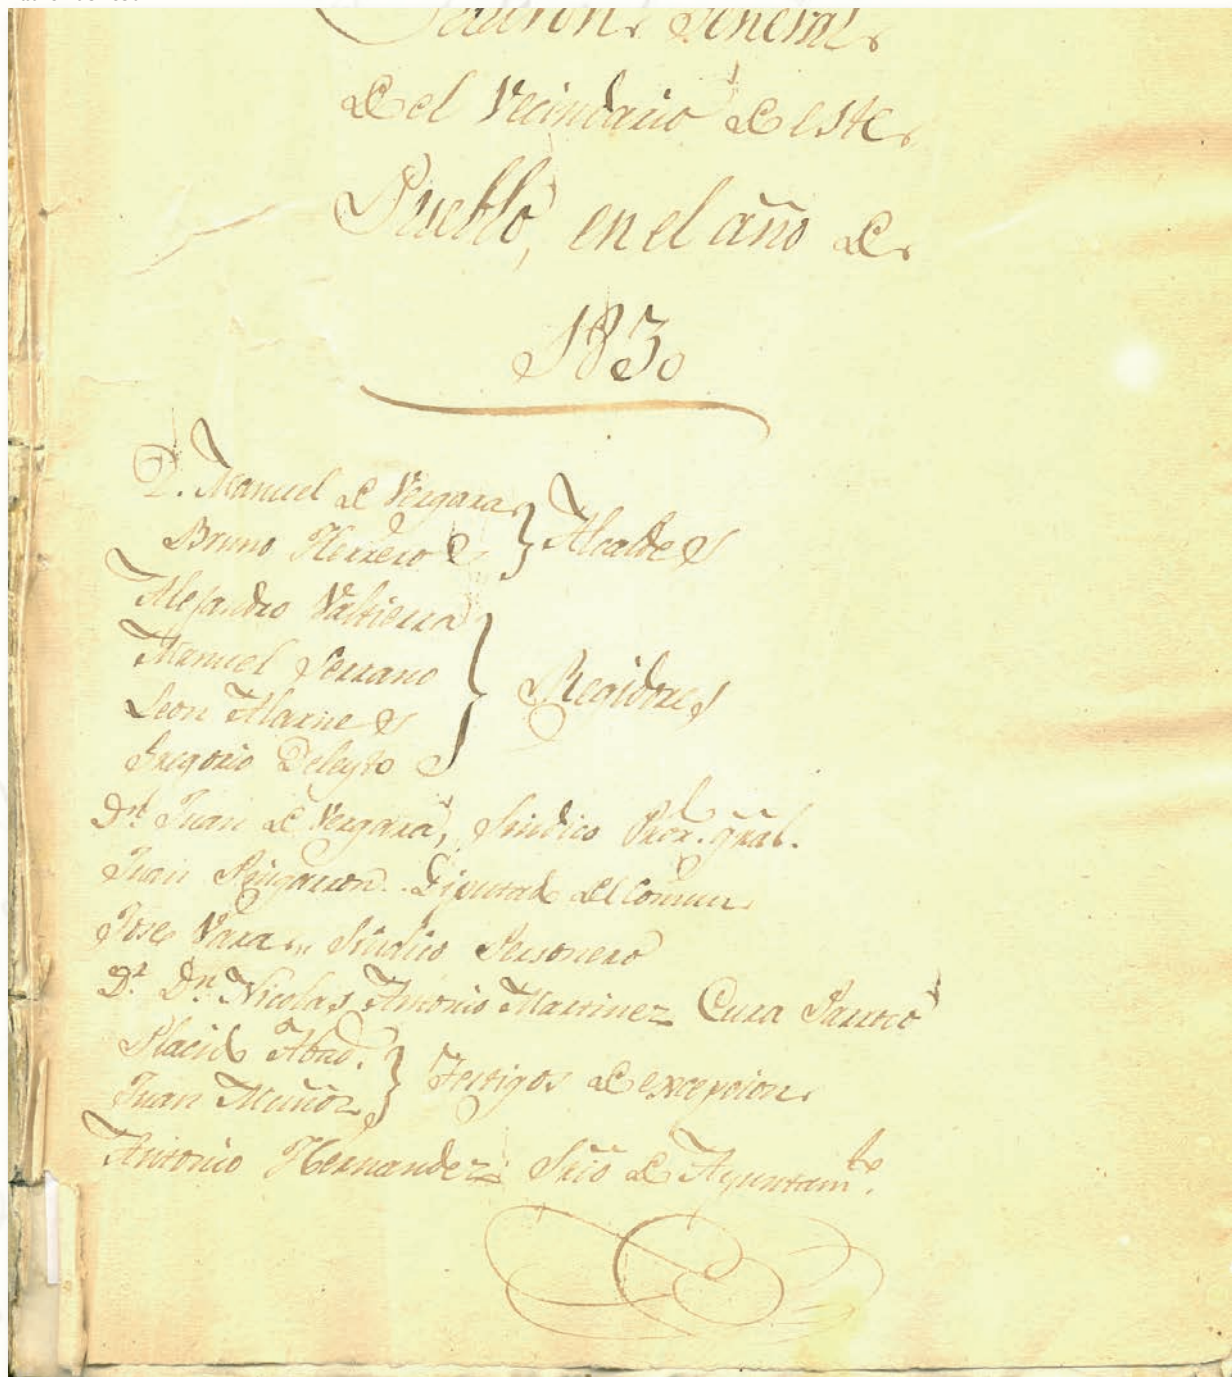 Padron General
del Vecindario de este
Pueblo, en el año de
1830
D. Manuel de Vergara } Alcaldes
Bruno Herrero
Alejandro Valtierra
Manuel Serrano } Regidores
Leon Alarnes
Gregorio Deleyto
Dn. Juan de Vergara, Sindico Pror. gral.
Juan Pingarron.. Diputado del Comun
Jose Vara... Sindico Personero
Dr. Dn. Nicolas Antonio Martinez Cura Parroco
Placido Abad. } Testigos de excepcion
Juan Muñoz
Antonio Hernandez Srio de Ayuntamto.